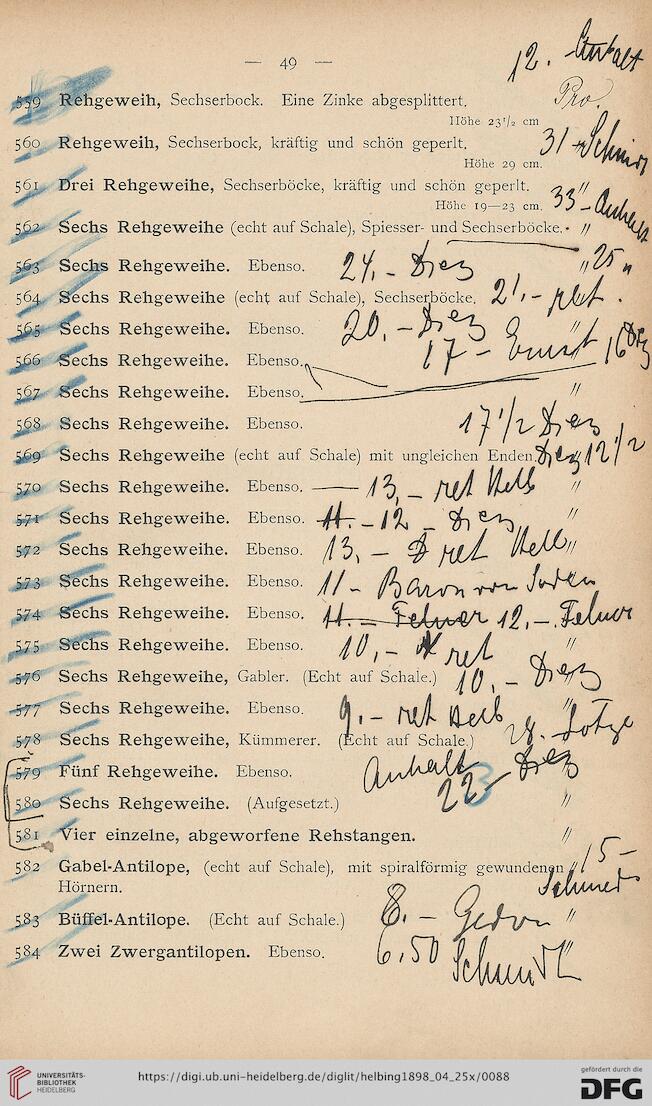 — 49 —
12. Anhalt
559 Rehgeweih, Sechserbock. Eine Zinke abgesplittert. Pro.
Höhe 23½ cm
560 Rehgeweih, Sechserbock, kräftig und schön geperlt. 31 - Schmidt
Höhe 29 cm.
561 Drei Rehgeweihe, Sechserböcke, kräftig und schön geperlt. "
Höhe 19—23 cm. 33 - Anhalt
562 Sechs Rehgeweihe (echt auf Schale), Spiesser- und Sechserböcke. "
563 Sechs Rehgeweihe. Ebenso. 24.- Diez " 25 "
564 Sechs Rehgeweihe (echt auf Schale), Sechserböcke. 21.- ret.
565 Sechs Rehgeweihe. Ebenso. 20.- Diez "
566 Sechs Rehgeweihe. Ebenso. 17 - Ernst 16 Diez
567 Sechs Rehgeweihe. Ebenso. "
568 Sechs Rehgeweihe. Ebenso. 17 1/2 Diez
569 Sechs Rehgeweihe (echt auf Schale) mit ungleichen Enden. Diez 12 1/2
570 Sechs Rehgeweihe. Ebenso. — 13.- ret Helb "
571 Sechs Rehgeweihe. Ebenso. 11. - 12 - Diez "
572 Sechs Rehgeweihe. Ebenso. 13.- ret Helb "
573 Sechs Rehgeweihe. Ebenso. 11 - Baron von Soden
574 Sechs Rehgeweihe. Ebenso. 11. - Felner 12.- Felner
575 Sechs Rehgeweihe. Ebenso. 10,- ret "
576 Sechs Rehgeweihe, Gabler. (Echt auf Schale.) 10.- Diez
577 Sechs Rehgeweihe. Ebenso. 9.- ret Helb "
578 Sechs Rehgeweihe, Kümmerer. (Echt auf Schale.) 28. - Lotze
579 Fünf Rehgeweihe. Ebenso. Anhalt Diez
580 Sechs Rehgeweihe. (Aufgesetzt.) 22 - "
581 Vier einzelne, abgeworfene Rehstangen. "
582 Gabel-Antilope, (echt auf Schale), mit spiralförmig gewundenen " 15 -
Hörnern. Schmidt
583 Büffel-Antilope. (Echt auf Schale.) 8. - Gedon "
584 Zwei Zwergantilopen. Ebenso. 6.50 Schmidt "
UNIVERSITÄTS-
BIBLIOTHEK
HEIDELBERG
https://digi.ub.uni-heidelberg.de/diglit/helbing1898_04_25x/0088
gefördert durch die
DFG